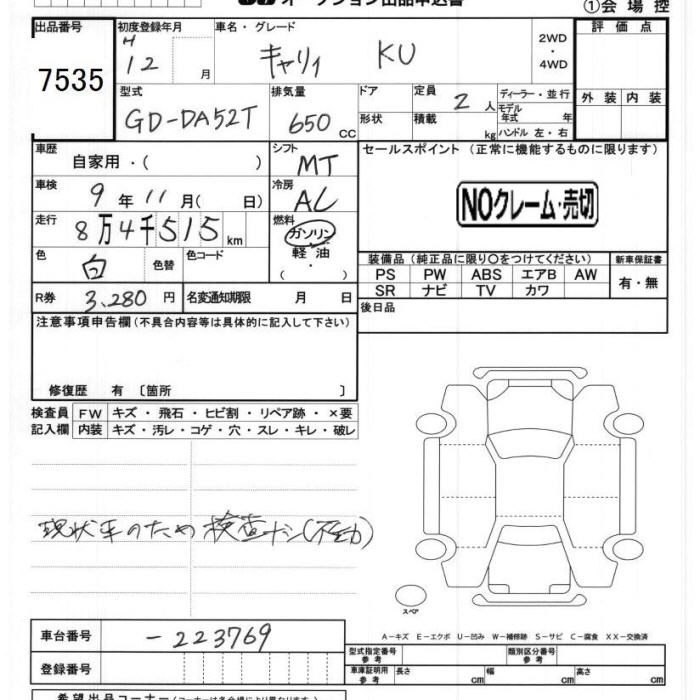 ①会場控
出品番号 初度登録年月 車名・グレード 評価点
7535 H12 月 キャリィ KU 2WD・4WD
外装 内装
型式 排気量 ドア 定員 ディーラー・並行
GD-DA52T 650cc 2人 モデル年式 年
形状 積載 kg ハンドル 左・右
車歴 自家用・( ) シフト MT セールスポイント (正常に機能するものに限ります)
車検 9年11月( 日) 冷房 AC
NOクレーム・売切
走行 8万4千515km 燃料 ガソリン・軽油・
色 白 色替 色コード
装備品(純正品に限り○をつけてください) 新車保証書
PS PW ABS エアB AW 有・無
SR ナビ TV カワ
R券 3,280円 名変通知期限 月 日 後日品
注意事項申告欄(不具合内容等は具体的に記入して下さい)
修復歴 有 〔箇所 〕
検査員 FW キズ・飛石・ヒビ割・リペア跡・×要
記入欄 内装 キズ・汚レ・コゲ・穴・スレ・キレ・破レ
現状車のため 検査ナシ(不動)
スペア
A-キズ E-エクボ U-凹み W-補修跡 S-サビ C-腐食 XX-交換済
車台番号 -223769
型式指定番号 参考 類別区分番号 参考
登録番号
車庫証明用 参考 長さ cm 幅 cm 高さ cm
希望出品コーナー